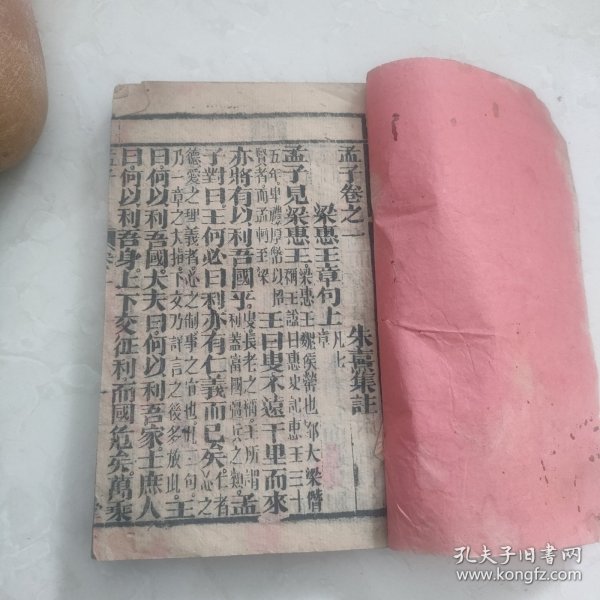 孟子卷之一
朱熹集註
梁惠王章句上凡七章
孟子見梁惠王梁惠王魏侯罃也都大梁僭稱王諡曰惠史記惠王三十
五年卑禮厚幣以招賢者而孟軻至梁王曰叟不遠千里而來
亦將有以利吾國乎叟長老之稱王所謂利蓋富國彊兵之類孟
子對曰王何必曰利亦有仁義而已矣仁者心之
德愛之理義者心之制事之宜也此二句乃一章之大指下文乃詳言之後多放此王
曰何以利吾國大夫曰何以利吾家士庶人
曰何以利吾身上下交征利而國危矣萬乘
孔夫子旧书网
www.kongfz.com